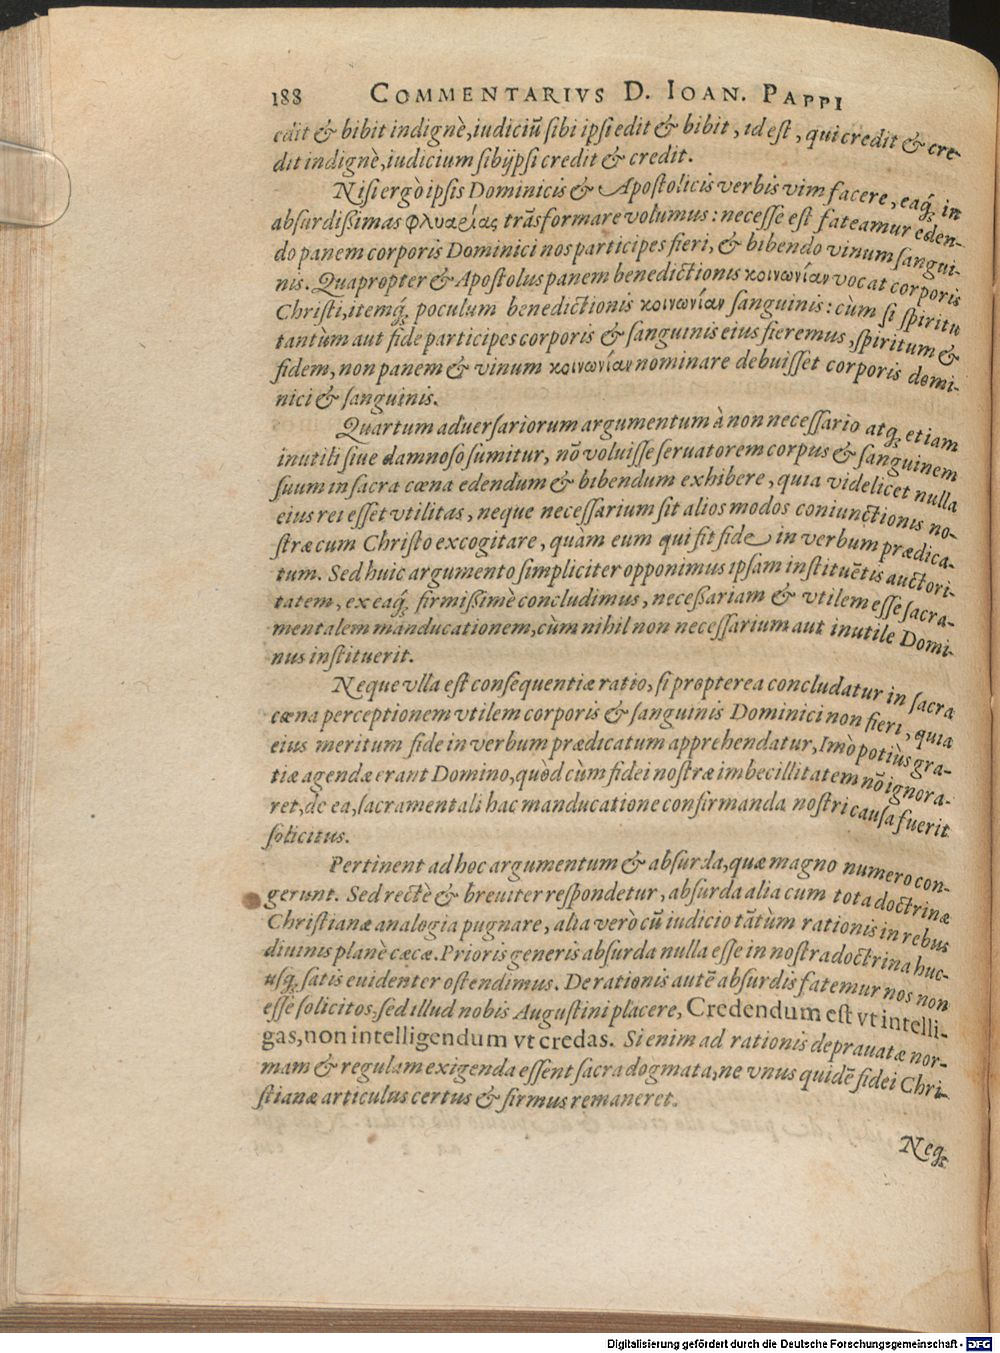 188 COMMENTARIVS D. IOAN. PAPPI
edit & bibit indignè, iudiciū sibi ipsi edit & bibit, id est, qui credit & cre-
dit indignè, iudicium sibijpsi credit & credit.
Nisi ergò ipsis Dominicis & Apostolicis verbis vim facere, eaq́; in
absurdißimas φλυαρίας trāsformare volumus: necesse est fateamur eden-
do panem corporis Dominici nos participes fieri, & bibendo vinum sangui-
nis. Quapropter & Apostolus panem benedictionis κοινωνίαν vocat corporis
Christi, itemq́; poculum benedictionis κοινωνίαν sanguinis: cùm si spiritu
tantùm aut fide participes corporis & sanguinis eius fieremus, spiritum &
fidem, non panem & vinum κοινωνίαν nominare debuisset corporis domi-
nici & sanguinis.
Quartum aduersariorum argumentum à non necessario atq; etiam
inutili siue damnoso sumitur, nō voluisse seruatorem corpus & sanguinem
suum in sacra cœna edendum & bibendum exhibere, quia videlicet nulla
eius rei esset vtilitas, neque necessarium sit alios modos coniunctionis no-
stræ cum Christo excogitare, quàm eum qui fit fide in verbum prædica-
tum. Sed huic argumento simpliciter opponimus ipsam instituētis auctori-
tatem, ex eaq́; firmißimè concludimus, neceßariam & vtilem esse sacra-
mentalem manducationem, cùm nihil non necessarium aut inutile Domi-
nus instituerit.
Neque vlla est consequentiæ ratio, si propterea concludatur in sacra
cœna perceptionem vtilem corporis & sanguinis Dominici non fieri, quia
eius meritum fide in verbum prædicatum apprehendatur, Imò potiùs gra-
tiæ agendæ erant Domino, quòd cùm fidei nostræ imbecillitatem nō ignora-
ret, de ea, sacramentali hac manducatione confirmanda nostri causa fuerit
solicitus.
Pertinent ad hoc argumentum & absurda, quæ magno numero con-
gerunt. Sed rectè & breuiter respondetur, absurda alia cum tota doctrinæ
Christianæ analogia pugnare, alia verò cū iudicio tātùm rationis in rebus
diuinis planè cæcæ. Prioris generis absurda nulla esse in nostra doctrina huc-
usq; satis euidenter ostendimus. De rationis autē absurdis fatemur nos non
esse solicitos, sed illud nobis Augustini placere, Credendum est vt intelli-
gas, non intelligendum vt credas. Si enim ad rationis deprauatæ nor-
mam & regulam exigenda essent sacra dogmata, ne vnus quidē fidei Chri-
stianæ articulus certus & firmus remaneret.
Neq;
Digitalisierung gefördert durch die Deutsche Forschungsgemeinschaft - DFG